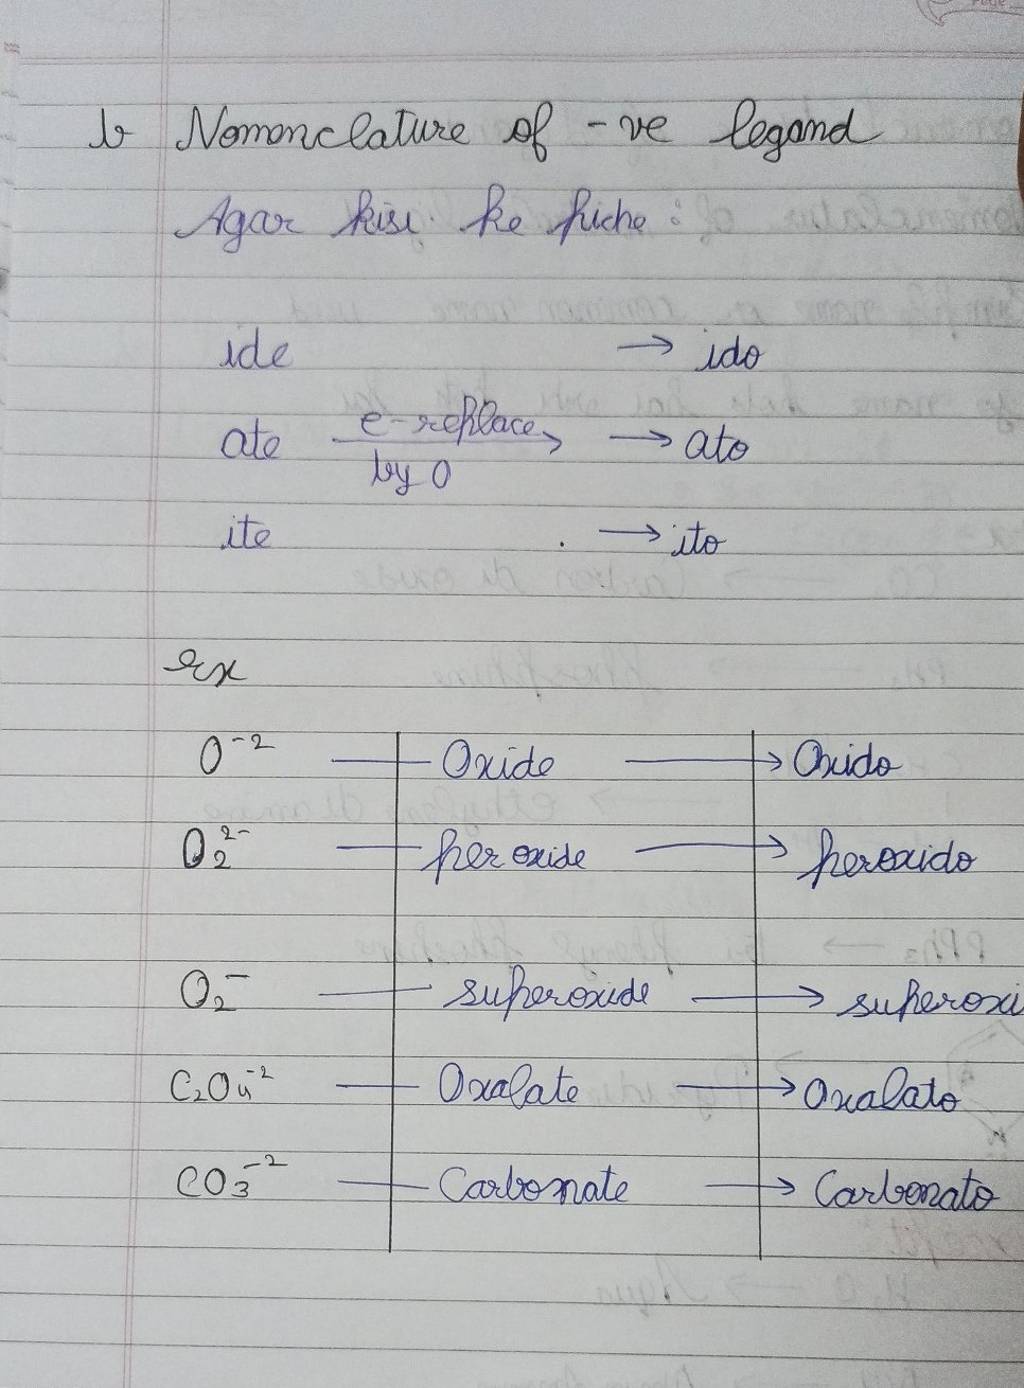 b Nomenclature of -ve legand
Agar kisi ke piche :
ide → ido
ate e-replace by O → ato
ite → ito
ex
O⁻² — Oxide → Oxido
O₂²⁻ — peroxide → peroxido
O₂⁻ — superoxide → superoxi
C₂O₄⁻² — Oxalate → Oxalato
CO₃⁻² — Carbonate → Carbonato